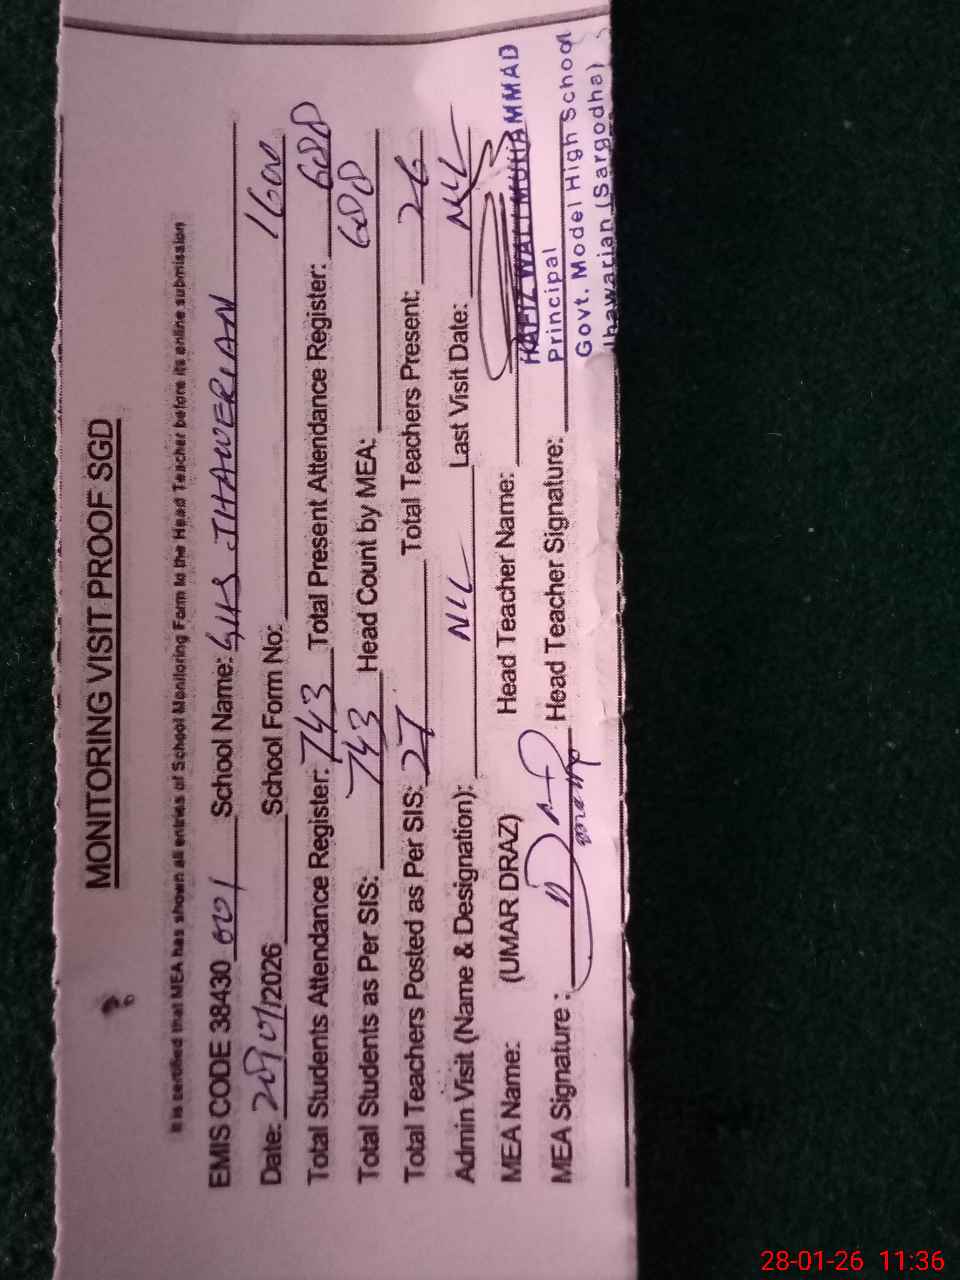 MONITORING VISIT PROOF SGD
It is certified that MEA has shown all entries of School Monitoring Form to the Head Teacher before its online submission
EMIS CODE 38430 001 School Name: GHS JHAWERIAN
Date: 28/01/2026 School Form No:
Total Students Attendance Register: 743 Total Present Attendance Register: 688
Total Students as Per SIS: 743 Head Count by MEA: 688
Total Teachers Posted as Per SIS: 27 Total Teachers Present: 26
Admin Visit (Name & Designation): NIL Last Visit Date: NIL
MEA Name: (UMAR DRAZ) Head Teacher Name:
MEA Signature : Head Teacher Signature:
HAFIZ WALI MUHAMMAD
Principal
Govt. Model High School
Jhawarian (Sargodha)
28-01-26 11:36